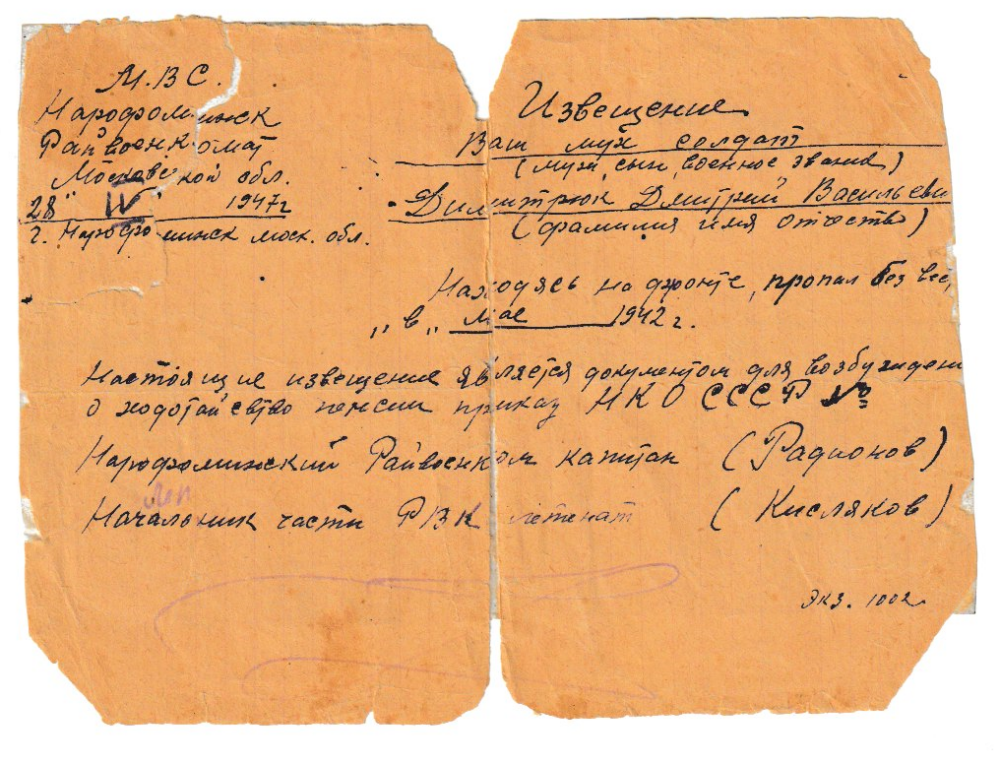 М.В.С.
Нарофоминск
Райвоенкомат
Московской обл.
28 " IV " 1947г
г. Нарофоминск моск. обл.
Извещение
Ваш муж солдат
(муж, сын, военное звание)
Димитрюк Дмитрий Васильеви
(фамилия имя отчество)
Находясь на фронте, пропал без вес,
„ в „ мае 1942 г.
Настоящие извещение является документом для возбуждени
о ходотайство пенсии приказ НКО СССР №
Нарофоминский Райвоенком капитан (Радионов)
Начальник части РВК летенат (Кисляков)
экз. 1002